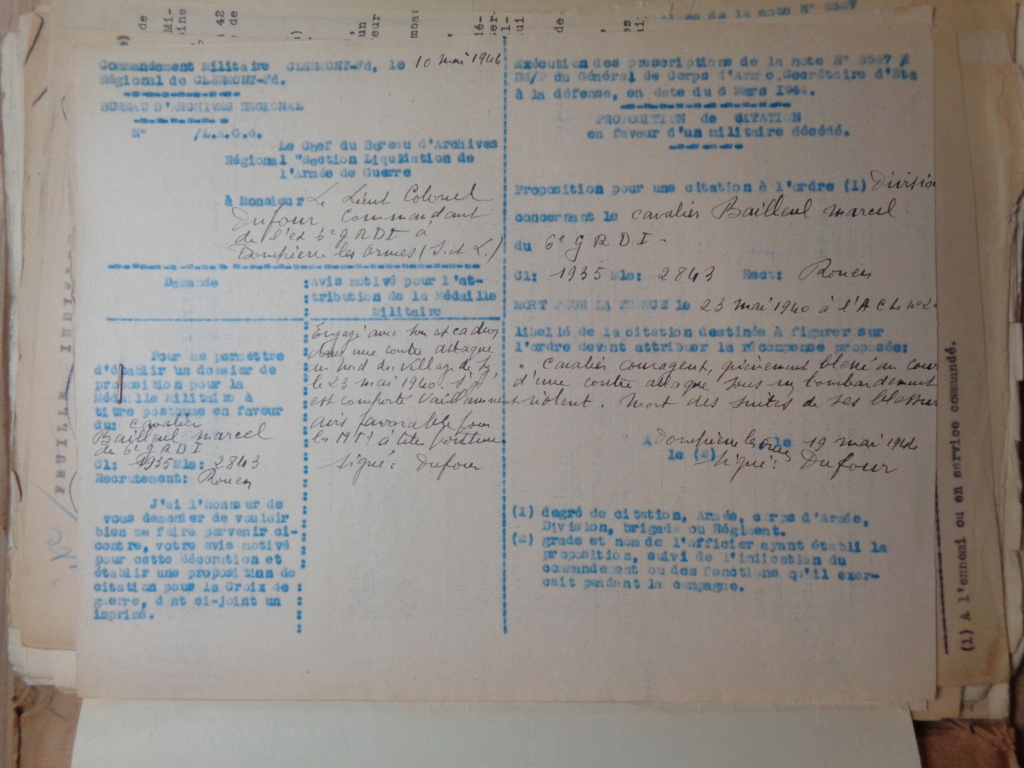 Commandement Militaire CLERMONT-Fd, le 10 mai 1944
Régional de CLERMONT-Fd.
BUREAU D'ARCHIVES REGIONAL
N° /L.A.G.G.
Le Chef du Bureau d'Archives
Régional "Section Liquidation de
l'Armée de Guerre
à Monsieur Le Lieut Colonel
Dufour Commandant
de l'ex 6e GRDI à
Dompierre les Ormes (S. et L.)
Demande
Pour me permettre
d'établir un dossier de
proposition pour la
Médaille Militaire à
titre posthume en faveur
du: cavalier
Bailleul marcel
du 6e GRDI
Cl: 1935 Mle: 2843
Recrutement: Rouen
J'ai l'honneur de
vous demander de vouloir
bien me faire parvenir ci-
contre, votre avis motivé
pour cette décoration et
établir une proposition de
citation pour la Croix de
guerre, dont ci-joint un
imprimé.
Avis motivé pour l'at-
tribution de la Médaille
Militaire
Engagé avec son escadron
dans une contre attaque
au Nord du village de
le 23 mai 1940. S'y
est comporté vaillamment
avis favorable pour
la à titre posthume
Signé: Dufour
Exécution des prescriptions de la note N° 2587
du Général de Corps d'Armée, Secrétaire d'Eta
à la défense, en date du 6 Mars 1944.
PROPOSITION de CITATION
en faveur d'un militaire décédé.
Proposition pour une citation à l'ordre (1) Division
concernant le cavalier Bailleul marcel
du 6e GRDI -
Cl: 1935 Mle: 2843 Rect: Rouen
MORT POUR LA FRANCE le 23 mai 1940 à l'A Ch n° 2
libellé de la citation destinée à figurer sur
l'ordre devant attribuer la récompense proposée:
" Cavalier courageux, grièvement blessé au cours
d'une contre attaque sous un bombardement
violent. Mort des suites de ses blessur
A Dompierre les Ormes le 19 mai 1944
le (2) Signé: Dufour
(1) degré de citation, Armée, corps d'Armée,
Division, brigade ou Régiment.
(2) grade et nom de l'officier ayant établi la
proposition, suivi de l'indication du
commandement ou des fonctions qu'il exer-
çait pendant la campagne.
(1) A l'ennemi ou en service commandé.
FEUILLE INDIV